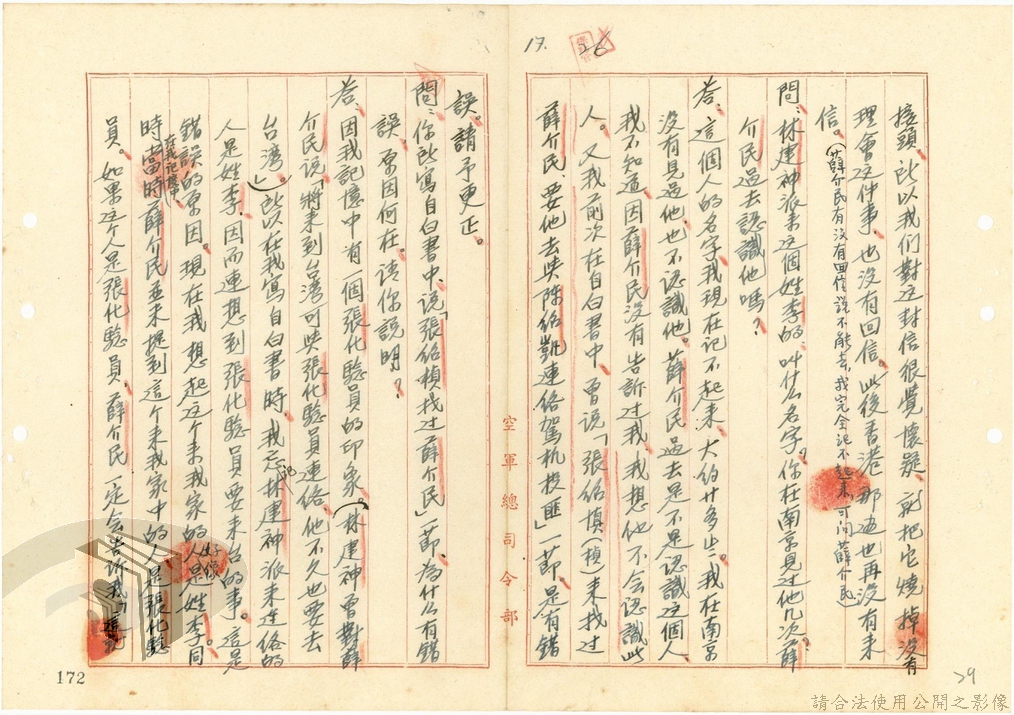 17.
接頭，所以我们對这封信很覺懷疑，就把它燒掉沒有
理會这件事，也沒有回信。此後香港那边也再沒有来
信。（薛介民有沒有回信說不能去，我完全記不起来，可问薛介民）
問：林建神派来这個姓李的，叫什么名字？你在南京見过他几次？薛
介民过去認識他嗎？
答：這個人的名字我現在記不起来，大約廿多岁。我在南京
沒有見过他，也不認識他。薛介民过去是不是認識这個人
我不知道，因薛介民沒有告訴过我，我想他不会認識此
人。又我前次在自白書中，曾说「張紹填（楨）来找过
薛介民，要他去與陈紹凱連絡駕机投匪」一節，是有錯
空軍總司令部
29
誤。請予更正。
問：你所寫自白書中，说「張紹楨找过薛介民」一節，為什么有錯
誤，原因何在，请你説明？
答：因我記憶中有一個張化驗員的印象。（林建神曾對薛
介民说「將来到台湾可與張化驗員連絡，他不久也要去
台湾。」）所以在我寫自白書時，我忘記林建神派来连络的
人是姓李，因而連想到張化驗員要来台的事。這是
錯誤的原因。現在我想起这个来我家的人好像是姓李，同
時在我記憶中，當時薛介民並未提到這个来我家中的人是張化驗
員。如果这个人是張化驗員，薛介民一定会告訴我
172
請合法使用公開之影像